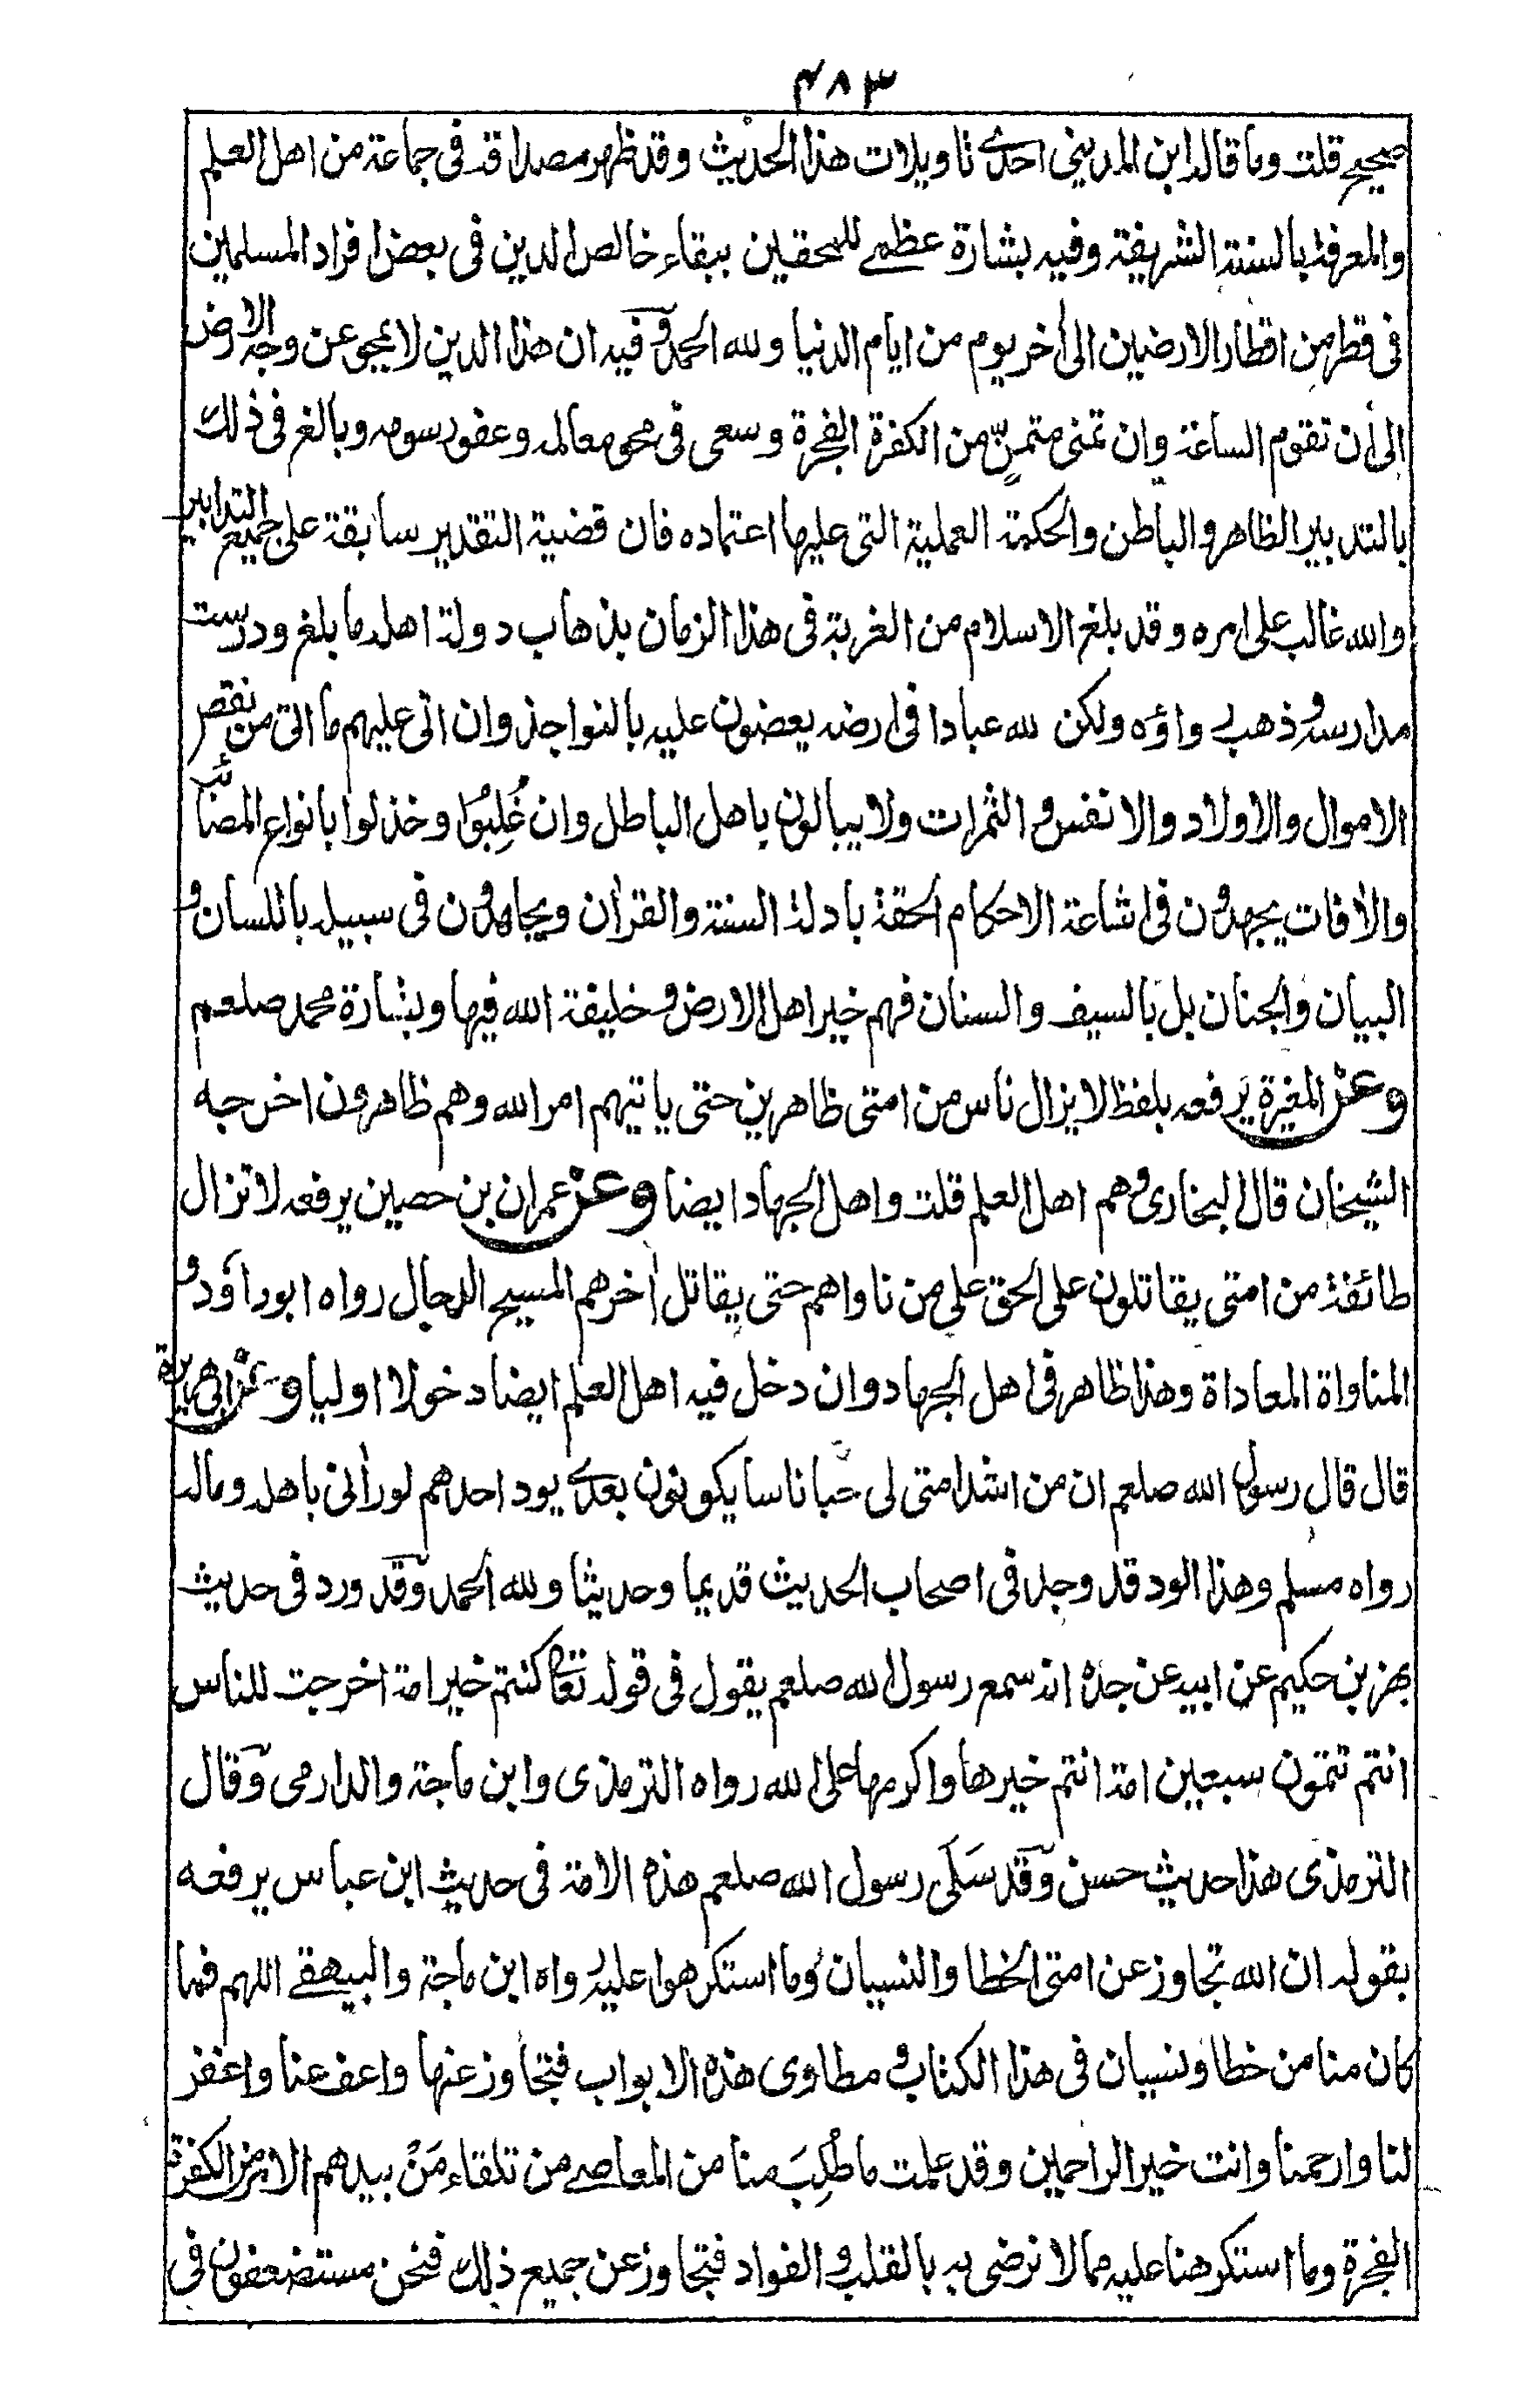 ۴۸۳
صحيح قلت وما قاله ابن المديني احدى تاويلات هذا الحديث وقد ظهر مصداقه في جماعة من اهل العلم
والمعرفة بالسنة الشريفة وفيه بشارة عظمى للمحقين ببقاء خالص الدين في بعض افراد المسلمين
في قطر من اقطار الارضين الى أخر يوم من ايام الدنيا ولله الحمد وفيه ان هذا الدين لا يمحى عن وجه الارض
الى أن تقوم الساعة وان تمنى متمنٍّ من الكفرة الفجرة وسعى في محو معالمه وعفو رسومه وبالغ في ذلك
بالتدبير الظاهر والباطن والحكمة العملية التي عليها اعتماده فان قضية التقدير سابقة على جميع التدابير
والله غالب على امره وقد بلغ الاسلام من الغربة في هذا الزمان بذهاب دولة اهله ما بلغ ودرست
مدارسه وذهب رواؤه ولكن لله عبادا في ارضه يعضون عليه بالنواجذ وان اتى عليهم ما اتى من نقص
الاموال والاولاد والانفس والثمرات ولا يبالون باهل الباطل وان غُلِبُوا وخذلوا بانواع المصائب
والأفات يجهدون في اشاعة الاحكام الحقة بادلة السنة والقرأن ويجاهدون في سبيله باللسان و
البيان والجنان بل بالسيف والسنان فهم خير اهل الارض وخليفة الله فيها وبشارة محمد صلعم
وعن المغيرة يرفعه بلفظ لا يزال ناس من امتى ظاهرين حتى ياتيهم امر الله وهم ظاهرون اخرجه
الشيخان قال البخارى وهم اهل العلم قلت واهل الجهاد ايضا وعن عمران بن حصين يرفعه لا تزال
طائفة من امتى يقاتلون على الحق على من ناواهم حتى يقاتل أخرهم المسيح الدجال رواه ابوداؤد و
المناواة المعاداة وهذا ظاهر في اهل الجهاد وان دخل فيه اهل العلم ايضا دخولا اوليا وعن ابي هريرة
قال قال رسول الله صلعم ان من اشد امتى لى حبا ناسا يكونون بعدى يود احدهم لو رأنى باهله وماله
رواه مسلم وهذا الود قد وجد في اصحاب الحديث قديما وحديثا ولله الحمد وقد ورد في حديث
بهز بن حكيم عن ابيه عن جده انه سمع رسول الله صلعم يقول في قوله تعا كنتم خير امة اخرجت للناس
انتم تتمون سبعين امة انتم خيرها واكرمها على الله رواه الترمذى وابن ماجة والدارمى وقال
الترمذى هذا حديث حسن وقد سَلَّى رسول الله صلعم هذه الامة في حديث ابن عباس يرفعه
بقوله ان الله تجاوز عن امتى الخطا والنسيان وما استكرهوا عليه رواه ابن ماجة والبيهقى اللهم فما
كان منا من خطا ونسيان في هذا الكتاب و مطاوى هذه الابواب فتجاوز عنها واعف عنا واغفر
لنا وارحمنا وانت خير الراحمين وقد علمت ما طُلِبَ منا من المعاصى من تلقاء مَنْ بيدهم الامر من الكفرة
الفجرة وما استكرهنا عليه مما لا نرضى به بالقلب و الفواد فتجاوز عن جميع ذلك فنحن مستضعفون في